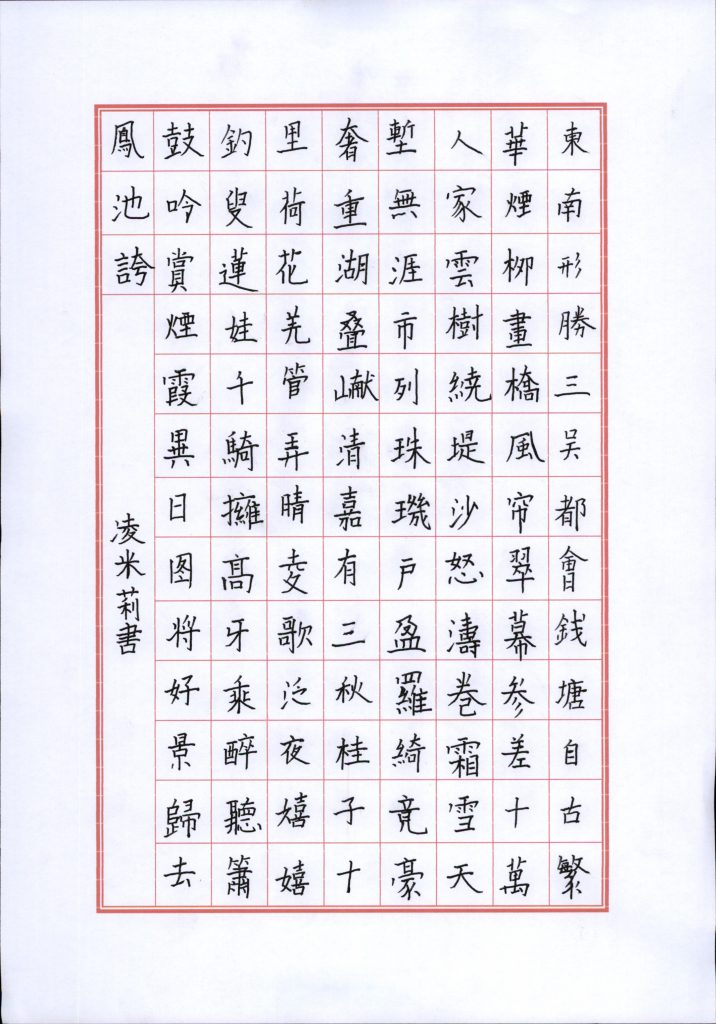 東南形勝三吴都會錢塘自古繁
華煙栁畫橋風帘翠幕參差十萬
人家雲樹繞堤沙怒濤卷霜雪天
塹無涯市列珠璣户盈羅綺竟豪
奢重湖叠巘清嘉有三秋桂子十
里荷花羌管弄晴菱歌泛夜嬉嬉
釣叟蓮娃千騎擁高牙乘醉聽簫
鼓吟賞煙霞異日图将好景歸去
鳳池誇
凌米莉書